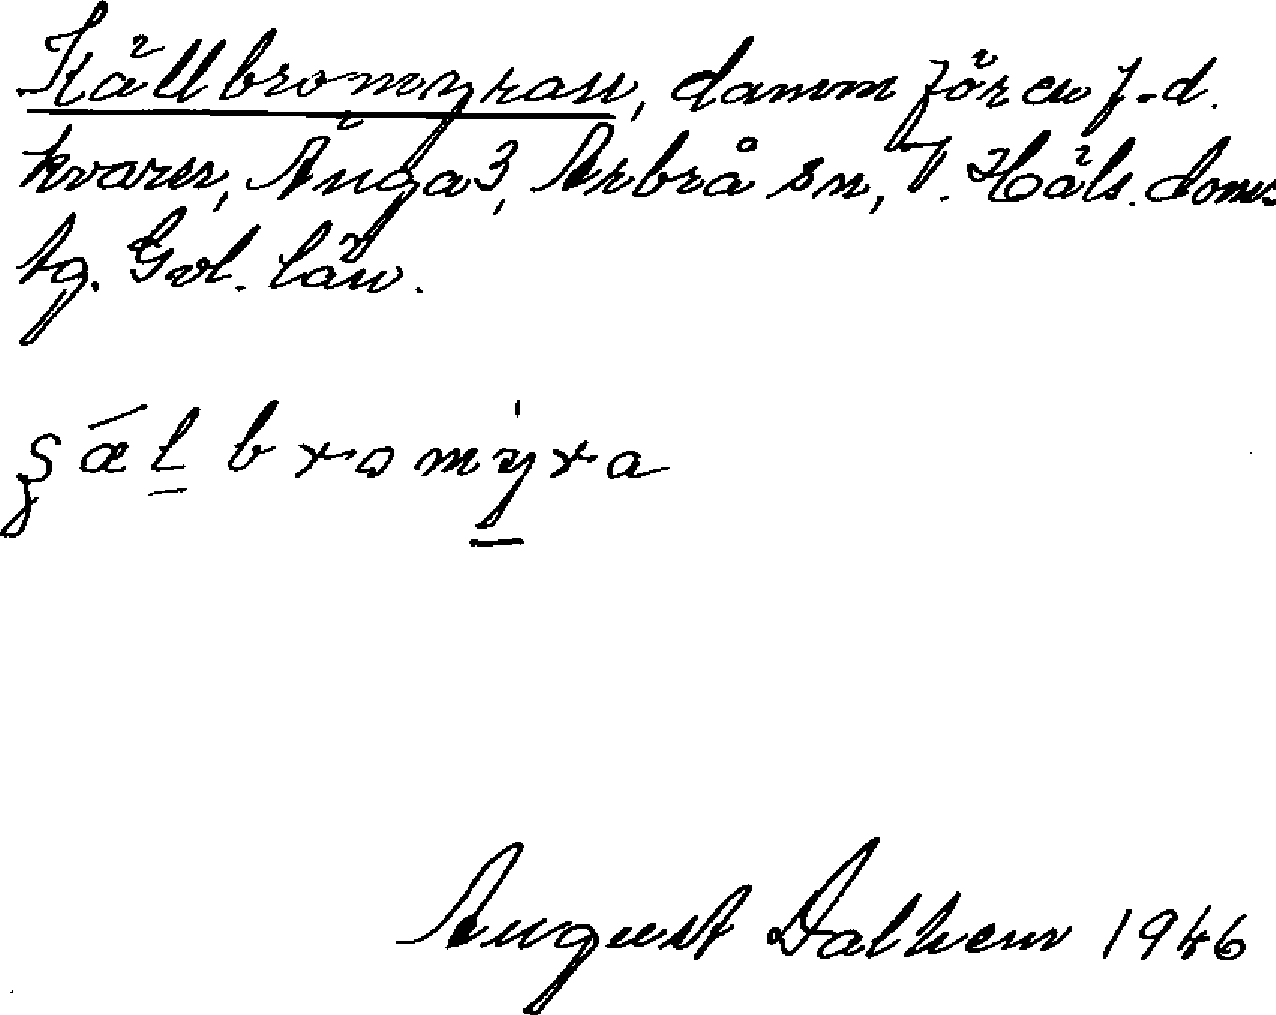 Källbromyran, damm för en f.d.
kvarn, Änga 3, Arbrå sn, V. Häls. doms-
tg. Gvl. län.
ʂæ̅l̲bromy̲ra
August Dalhem 1946